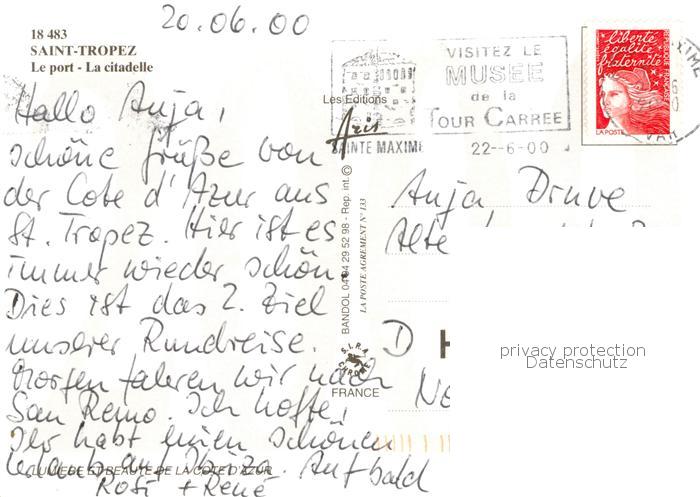 20.06.00
18 483
SAINT-TROPEZ
Le port - La citadelle
Hallo Anja,
schöne Grüße von
der Cote d'Azur aus
St. Tropez. Hier ist es
immer wieder schön.
Dies ist das 2. Ziel
unserer Rundreise.
Morgen fahren wir nach
San Remo. Ich hoffe,
Ihr habt einen schönen
Urlaub auf Ibiza. Auf bald
Rosi + René
LUMIERE ET BEAUTE DE LA COTE D'AZUR
VISITEZ LE
MUSEE
de la
TOUR CARREE
SAINTE MAXIME
22--6-00
VAR
liberté
égalité
fraternité
REPUBLIQUE FRANÇAISE
LA POSTE
Les Editions
Aris
BANDOL 04 94 29 52 98 - Rep. int. ©
LA POSTE AGREMENT N° 133
S.I.R.A.
CHROME
FRANCE
Anja Druve
Alte
D
privacy protection
Datenschutz